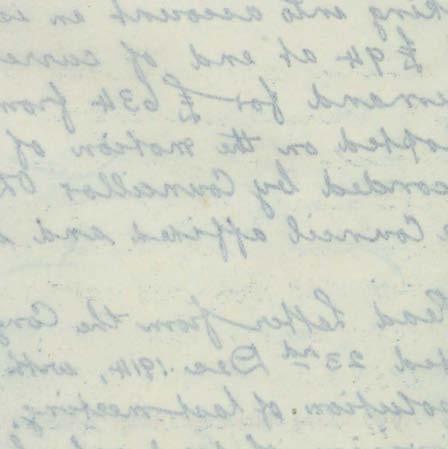 king into account an es
£94 at end of curre
emand for £634 from
opted on the motion of
conded by Councillor
e Council affixed and s
Read letter from the
ted 23rd Dec 1914, with
solution of last meeting,